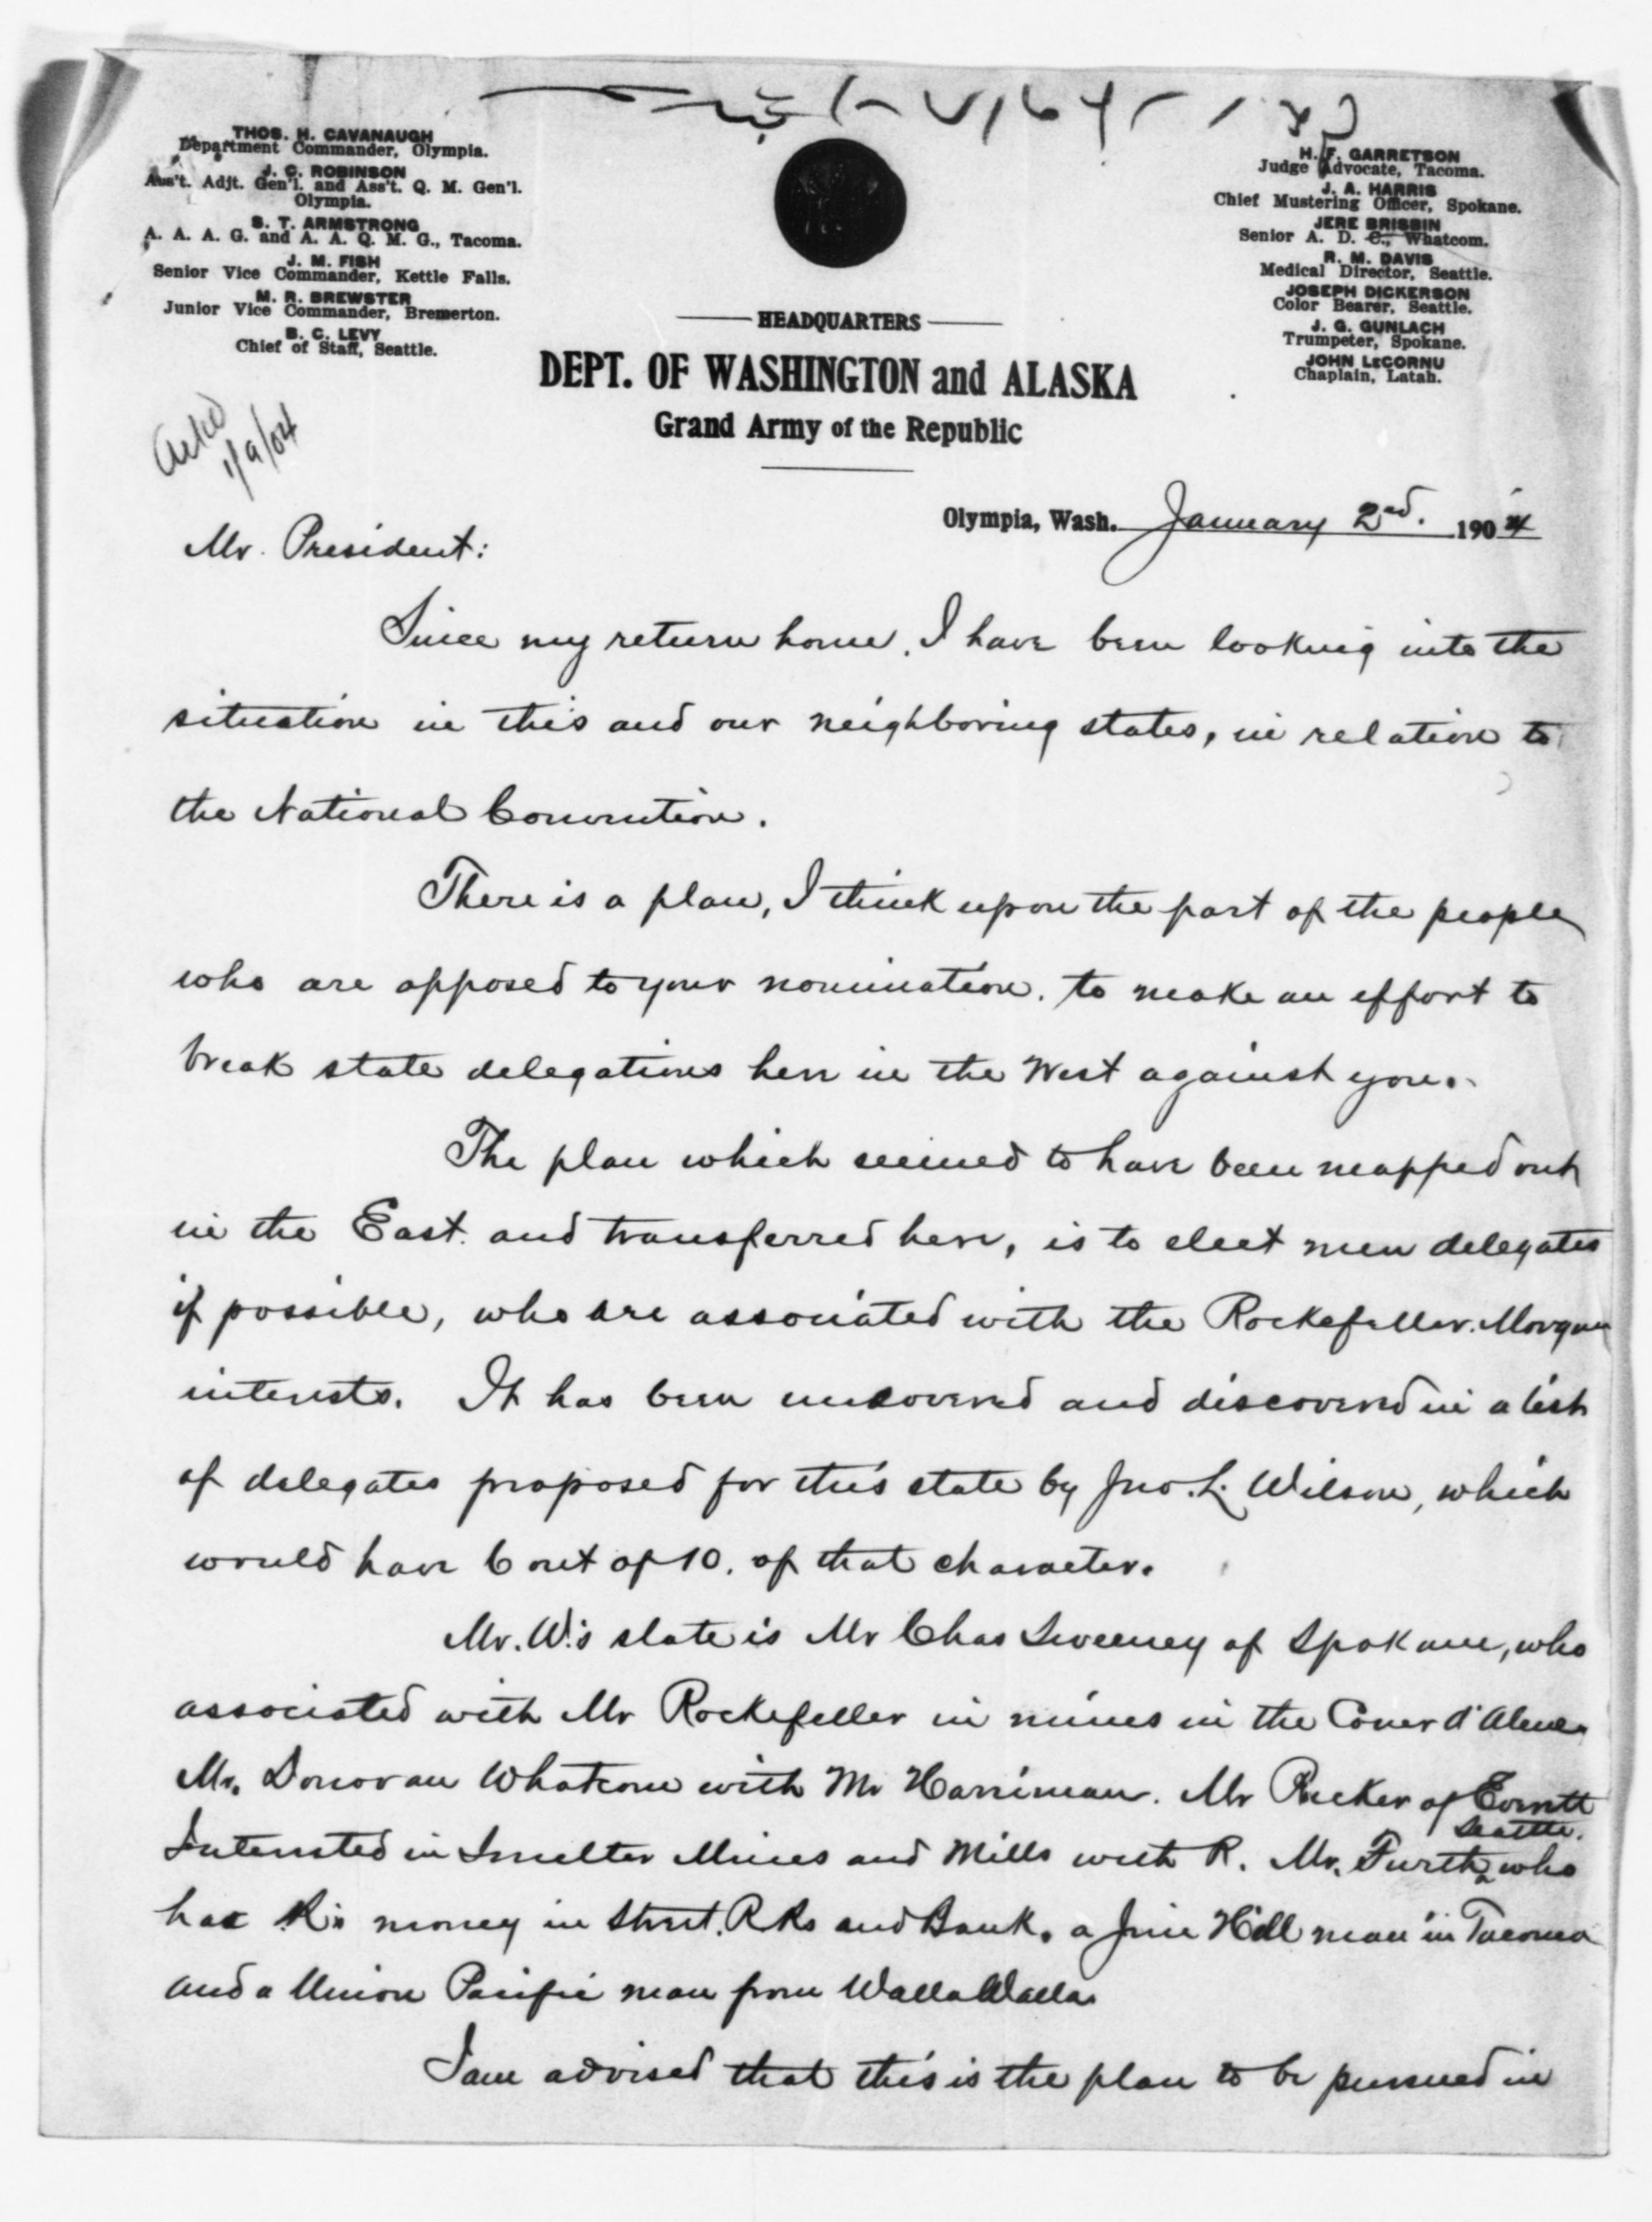 THOS. H. CAVANAUGH
Department Commander, Olympia.
J. C. ROBINSON
Ass't. Adjt. Gen'l. and Ass't. Q. M. Gen'l.
Olympia.
S. T. ARMSTRONG
A. A. A. G. and A. A. Q. M. G., Tacoma.
J. M. FISH
Senior Vice Commander, Kettle Falls.
M. R. BREWSTER
Junior Vice Commander, Bremerton.
B. C. LEVY
Chief of Staff, Seattle.
H. F. GARRETSON
Judge Advocate, Tacoma.
J. A. HARRIS
Chief Mustering Officer, Spokane.
JERE BRISBIN
Senior A. D. C., Whatcom.
R. M. DAVIS
Medical Director, Seattle.
JOSEPH DICKERSON
Color Bearer, Seattle.
J. G. GUNLACH
Trumpeter, Spokane.
JOHN LeCORNU
Chaplain, Latah.
HEADQUARTERS
DEPT. OF WASHINGTON and ALASKA
Grand Army of the Republic
Ackd
1/9/04
Olympia, Wash. January 2nd. 1904
Mr. President:
Since my return home, I have been looking into the
situation in this and our neighboring states, in relation to
the National Convention.
There is a plan, I think upon the part of the people
who are opposed to your nomination. to make an effort to
break state delegations here in the West against you.
The plan which seemed to have been mapped out
in the East. and transferred here, is to elect men delegates
if possible, who are associated with the Rockefeller. Morgan
interests. It has been uncovered and discovered in a list
of delegates proposed for this state by Jno. L. Wilson, which
would have 6 out of 10. of that character.
Mr. W's slate is Mr Chas Sweeney of Spokane, who
associated with Mr Rockefeller in mines in the Couer d'Alene
Mr. Donovan Whatcom with Mr Harriman. Mr Rucker of Everett
Interested in Smelter Mines and Mills with R. Mr. Furth Seattle. who
has R's money in Street. R Rs and Bank. a Jim Hill man in Tacoma
and a Union Pacific man from Walla Walla
I am advised that this is the plan to be pursued in